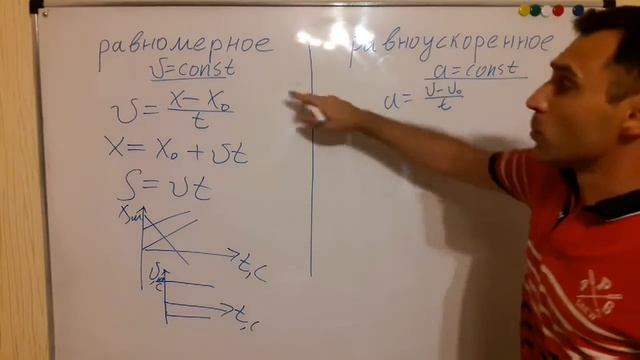 равномерное
v=const
v = x - x₀ / t
x = x₀ + vt
S = vt
x, м
t, c
v, м/c
t, c
равноускоренное
a = const
a = v - v₀ / t